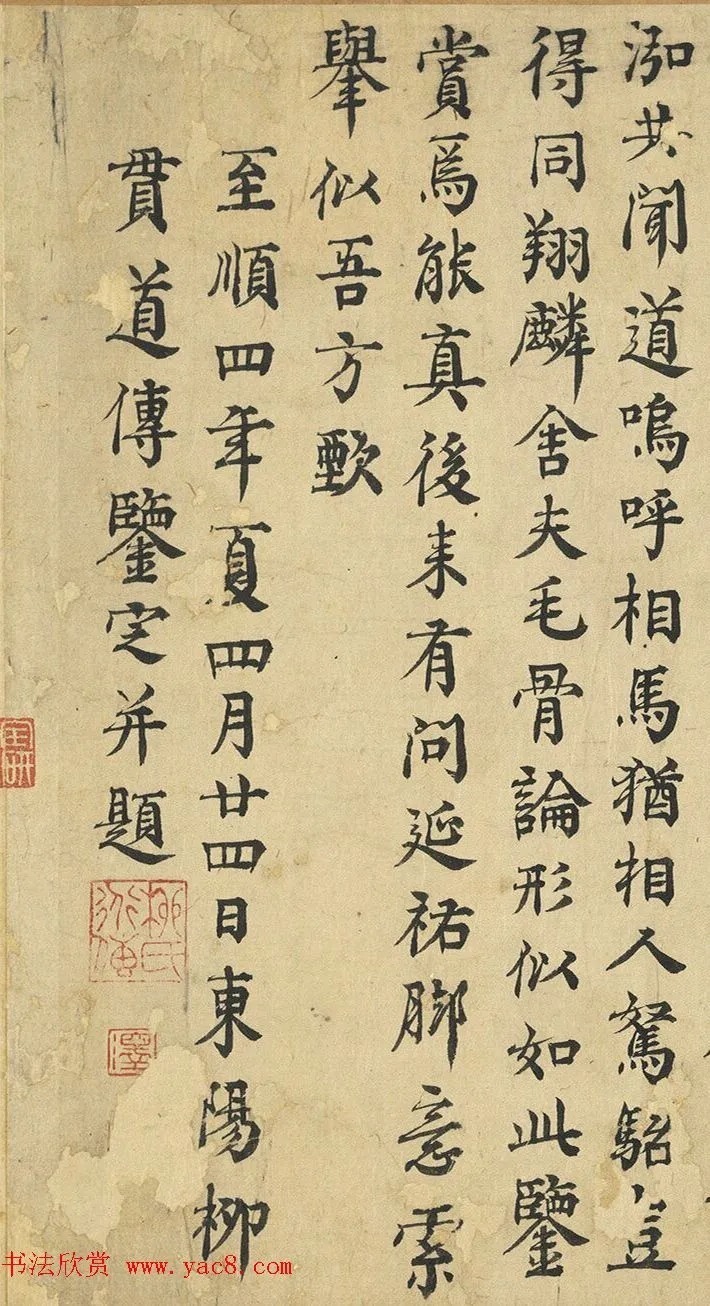 泓共聞道嗚呼相馬猶相人駑駘豈
得同翔麟舍夫毛骨論形似如此鑒
賞爲能真後来有問延祐脚意索
舉似吾方甄
至順四年夏四月廿四日東陽柳
貫道傳鑒定并題
柳氏道傳
澤
书法欣赏 www.yac8.com